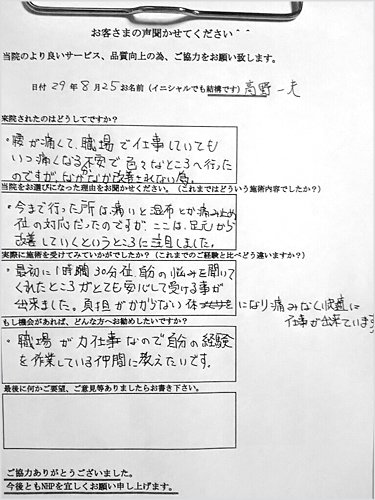 お客さまの声聞かせてください＾＾
当院のより良いサービス、品質向上の為、ご協力をお願い致します。
日付 29年 8月25 お名前(イニシャルでも結構です) 高野 一夫
来院されたのはどうしてですか？
・腰が痛くて、職場で仕事していても
いつ痛くなる不安で色々なところへ行った
のですが、なかなか改善されない為。
当院をお選びになった理由をお聞かせください。（これまではどういう施術内容でしたか？）
・今まで行った所は、痛いと湿布とか痛み止め
位の対応だったのですが、ここは、足元から
改善していくというところに注目しました。
実際に施術を受けてみていかがでしたか？（これまでのご経験と比べどう違いますか？）
・最初に1時間30分位、自分の悩みを聞いて
くれたところがとても安心して受ける事が
出来ました。負担がかからない体になり痛みなく快適に
仕事が出来ています
もし機会があれば、どんな方へお勧めしたいですか？
・職場が力仕事なので自分の経験
を作業している仲間に教えたいです。
最後に何かご要望、ご意見等ありましたらお書き下さい。
ご協力ありがとうございました。
今後ともNHPを宜しくお願い申し上げます。